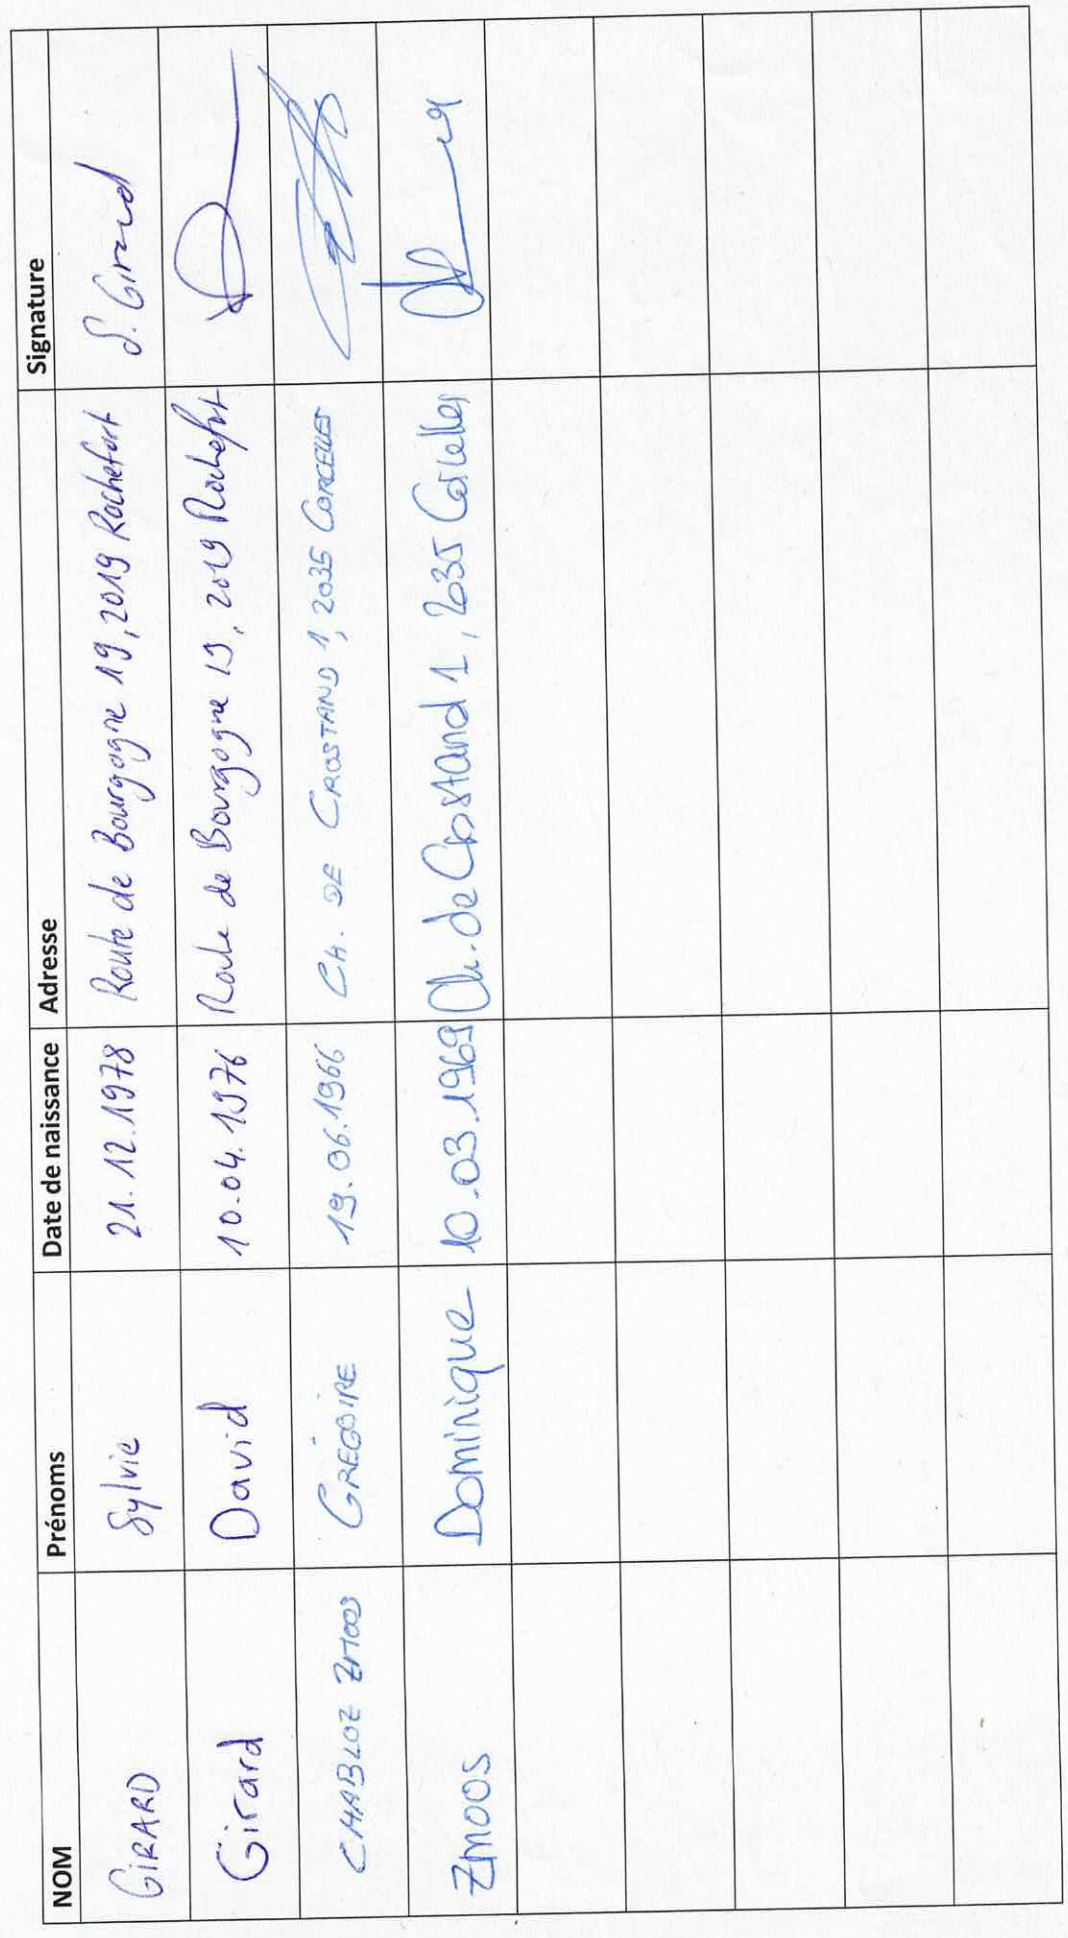 NOM Prénoms Date de naissance Adresse Signature
GIRARD Sylvie 21.12.1978 Route de Bourgogne 19, 2019 Rochefort S. Girard
Girard David 10.04.1976 Route de Bourgogne 19, 2019 Rochefort
CHABLOZ ZMOOS GRÉGOIRE 19.06.1966 CH. DE CROSTAND 1, 2035 CORCELLES
Zmoos Dominique 10.03.1969 Ch. de Crostand 1, 2035 Corcelles